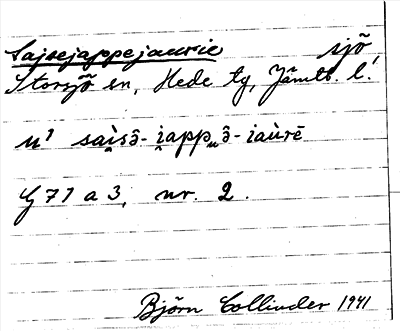 Sajsejappejaurie sjö
Storsjö sn, Hede tg, Jämtl. l.
u¹ sai̯sə̂- i̯app„ə̂- iaùrē
G 71 a 3, nr. 2.
Björn Collinder 1941